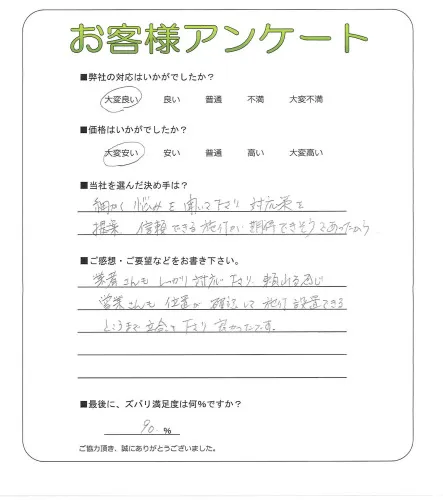 お客様アンケート
■弊社の対応はいかがでしたか？
大変良い 良い 普通 不満 大変不満
■価格はいかがでしたか？
大変安い 安い 普通 高い 大変高い
■当社を選んだ決め手は？
細かく 悩みを 聞いて下さり 対応策を
提案 信頼できる 施行が 期待できそうであったから
■ご感想・ご要望などをお書き下さい。
業者さんも しっかり対応 下さり、頼れる感じ
営業さんも 位置が 確認して 施行 設置できる
ところまで 立合って 下さり 良かったです。
■最後に、ズバリ満足度は何％ですか？
90 %
ご協力頂き、誠にありがとうございました。